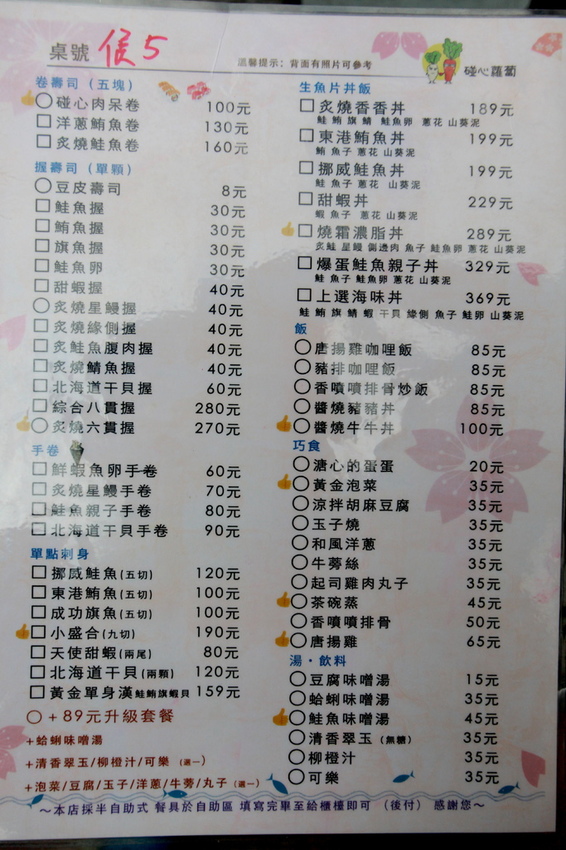 桌號 候5
溫馨提示：背面有照片可參考
碰心蘿蔔
卷壽司（五塊）
○碰心肉呆卷 100元
□洋蔥鮪魚卷 130元
□炙燒鮭魚卷 160元
握壽司（單顆）
○豆皮壽司 8元
□鮭魚握 30元
□鮪魚握 30元
□旗魚握 30元
□鮭魚卵 30元
□甜蝦握 40元
○炙燒星鰻握 40元
□炙燒緣側握 40元
□炙鮭魚腹肉握 40元
□炙燒鯖魚握 40元
□北海道干貝握 60元
□綜合八貫握 280元
○炙燒六貫握 270元
手卷
□鮮蝦魚卵手卷 60元
□炙燒星鰻手卷 70元
□鮭魚親子手卷 80元
□北海道干貝手卷 90元
單點刺身
□挪威鮭魚(五切) 120元
□東港鮪魚(五切) 100元
□成功旗魚(五切) 100元
□小盛合(九切) 190元
□天使甜蝦(兩尾) 80元
□北海道干貝(兩顆) 120元
□黃金單身漢鮭鮪旗蝦貝 159元
○+89元升級套餐
+蛤蜊味噌湯
+清香翠玉/柳橙汁/可樂（選一）
+泡菜/豆腐/玉子/洋蔥/牛蒡/丸子（選一）
生魚片丼飯
□炙燒香香丼 189元
鮭 鮪 旗 鯖 鮭魚卵 蔥花 山葵泥
□東港鮪魚丼 199元
鮪 魚子 蔥花 山葵泥
□挪威鮭魚丼 199元
鮭 魚子 蔥花 山葵泥
□甜蝦丼 229元
蝦 魚子 蔥花 山葵泥
□燒霜濃脂丼 289元
炙鮭 星鰻 側邊肉 魚子 鮭魚卵 蔥花 山葵泥
□爆蛋鮭魚親子丼 329元
鮭 魚子 鮭魚卵 蔥花 山葵泥
□上選海味丼 369元
鮭 鮪 旗 鯖 蝦 干貝 緣側 魚子 鮭卵 山葵泥
飯
○唐揚雞咖哩飯 85元
○豬排咖哩飯 85元
○香噴噴排骨炒飯 85元
○醬燒豬豬丼 85元
○醬燒牛牛丼 100元
巧食
○溏心的蛋蛋 20元
○黃金泡菜 35元
○涼拌胡麻豆腐 35元
○玉子燒 35元
○和風洋蔥 35元
○牛蒡絲 35元
○起司雞肉丸子 35元
○茶碗蒸 45元
○香噴噴排骨 50元
○唐揚雞 65元
湯・飲料
○豆腐味噌湯 15元
○蛤蜊味噌湯 35元
○鮭魚味噌湯 45元
○清香翠玉（無糖） 35元
○柳橙汁 35元
○可樂 35元
～本店採半自助式 餐具於自助區 填寫完畢至給櫃檯即可 （後付） 感謝您～